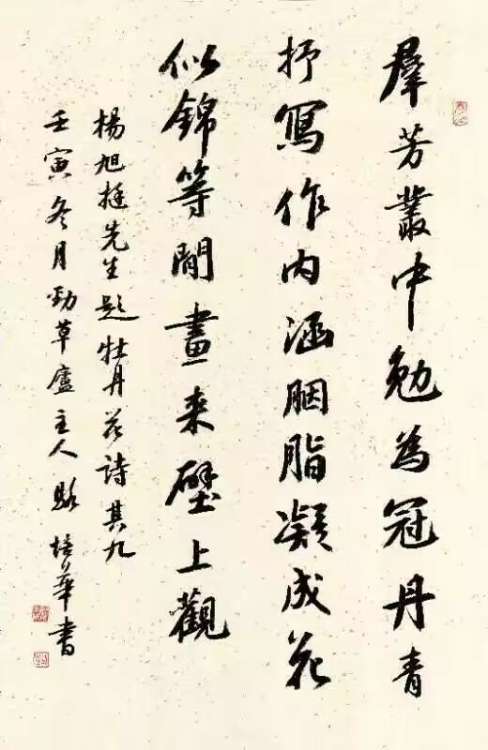 羣芳叢中勉為冠丹青
抒寫作內涵胭脂凝成花
似錦等閒畫来壁上觀
楊旭挺先生題牡丹花詩其九
壬寅冬月勁草廬主人駱培華书